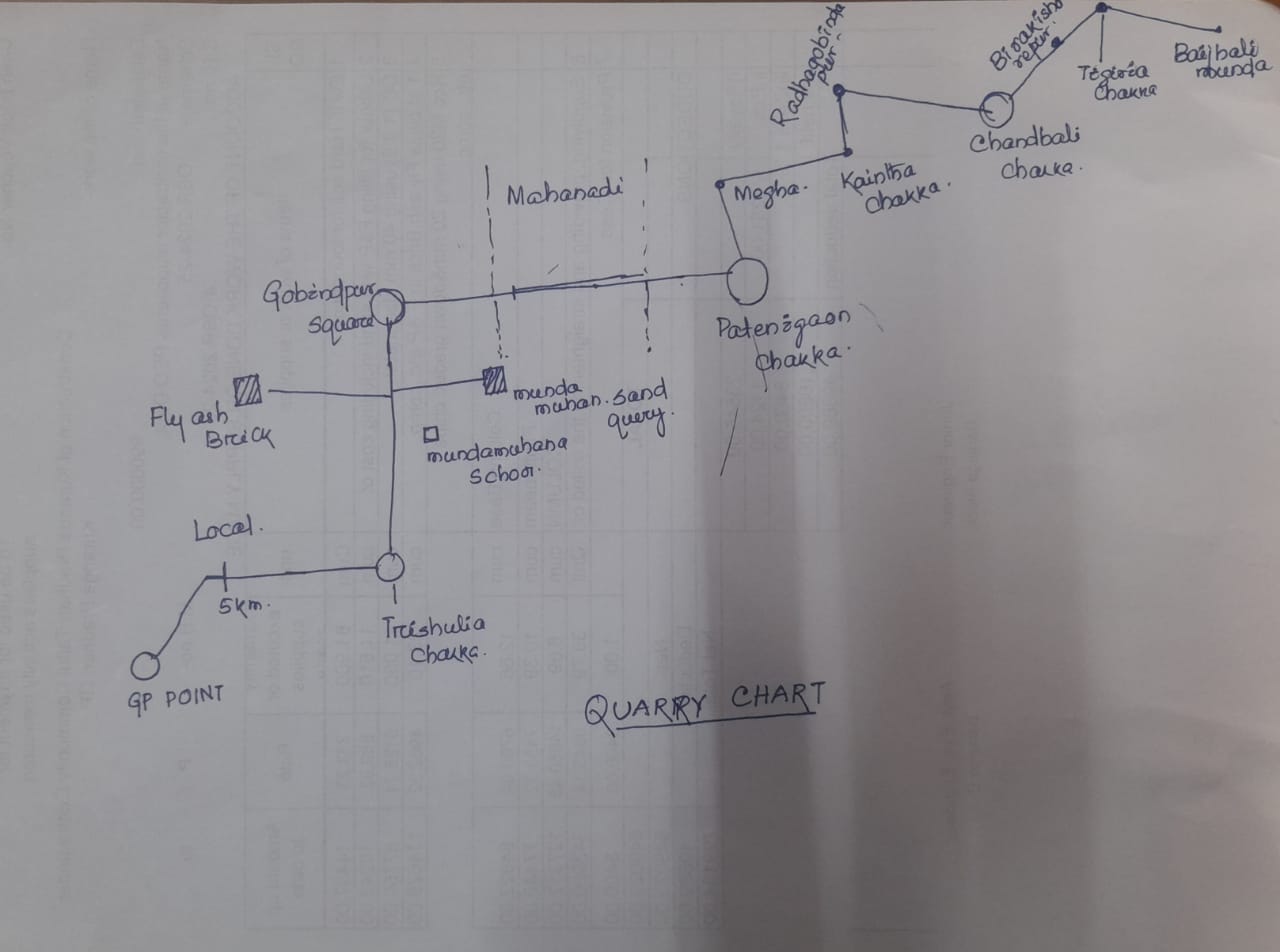 Radhagobinda
pur.
Birakisho
repur.
Tigiria
Chakka
Baijbali
munda
Chandbali
Chakka.
Mahanadi
Megha.
Kaintha
Chakka.
Gobindpur
Square
Patenigaon
Chakka.
Fly ash
Brick
munda
muhan.
Sand
query.
mundamuhana
School.
Local.
5km.
Trishulia
Chakka.
GP POINT
QUARRY CHART